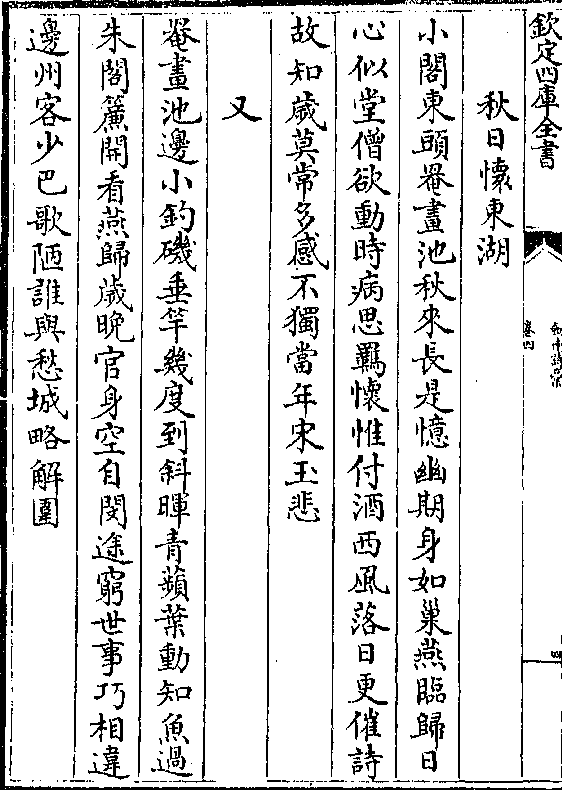 欽定四庫全書
卷四
秋日懷東湖
小閣東頭罨畫池秋來長是憶幽期身如巢燕臨歸日
心似堂僧欲動時病思羈懷惟付酒西風落日更催詩
故知歳莫常多感不獨當年宋玉悲
又
罨畫池邊小釣磯垂竿幾度到斜暉青蘋葉動知魚過
朱閣簾開看燕歸歳晚官身空自閔途窮世事巧相違
邊州客少巴歌陋誰與愁城略解圍